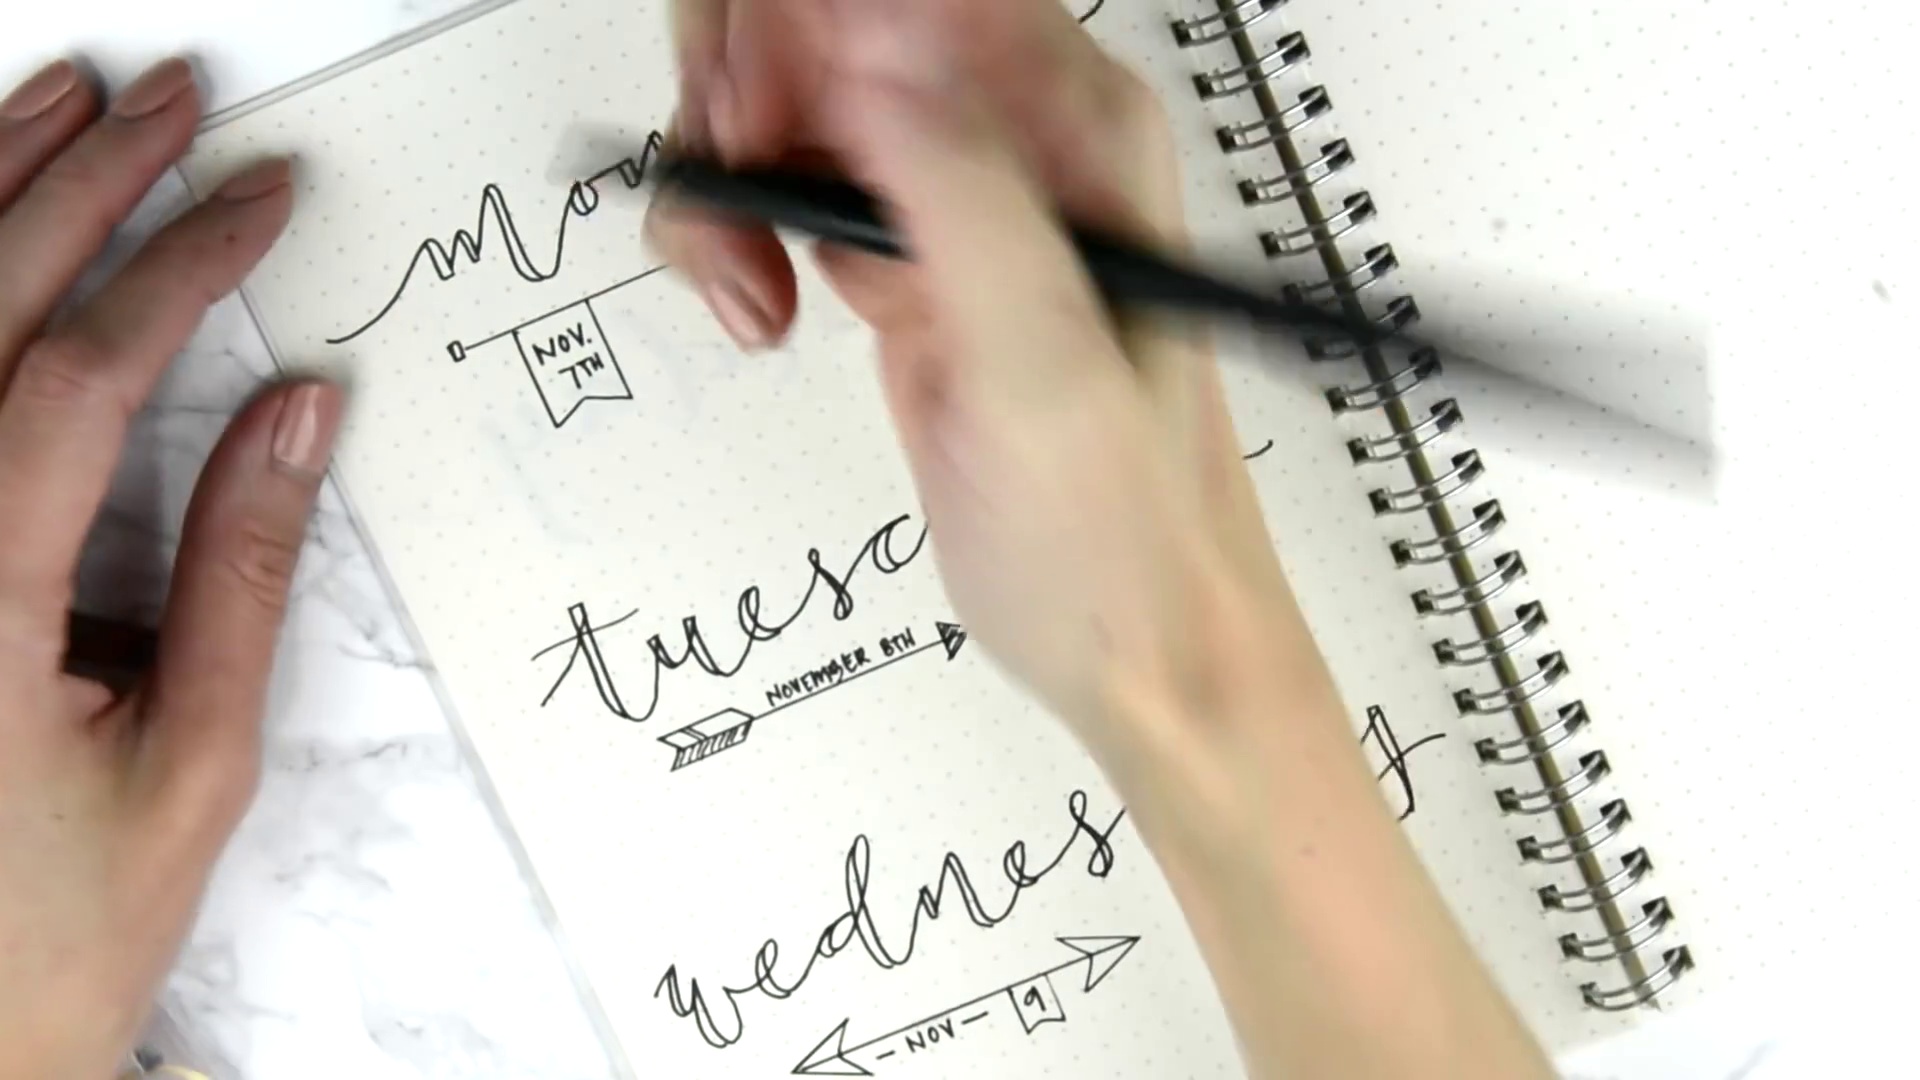 Mon
NOV.
7TH
tuesd
NOVEMBER 8TH
wednes
- NOV - 9